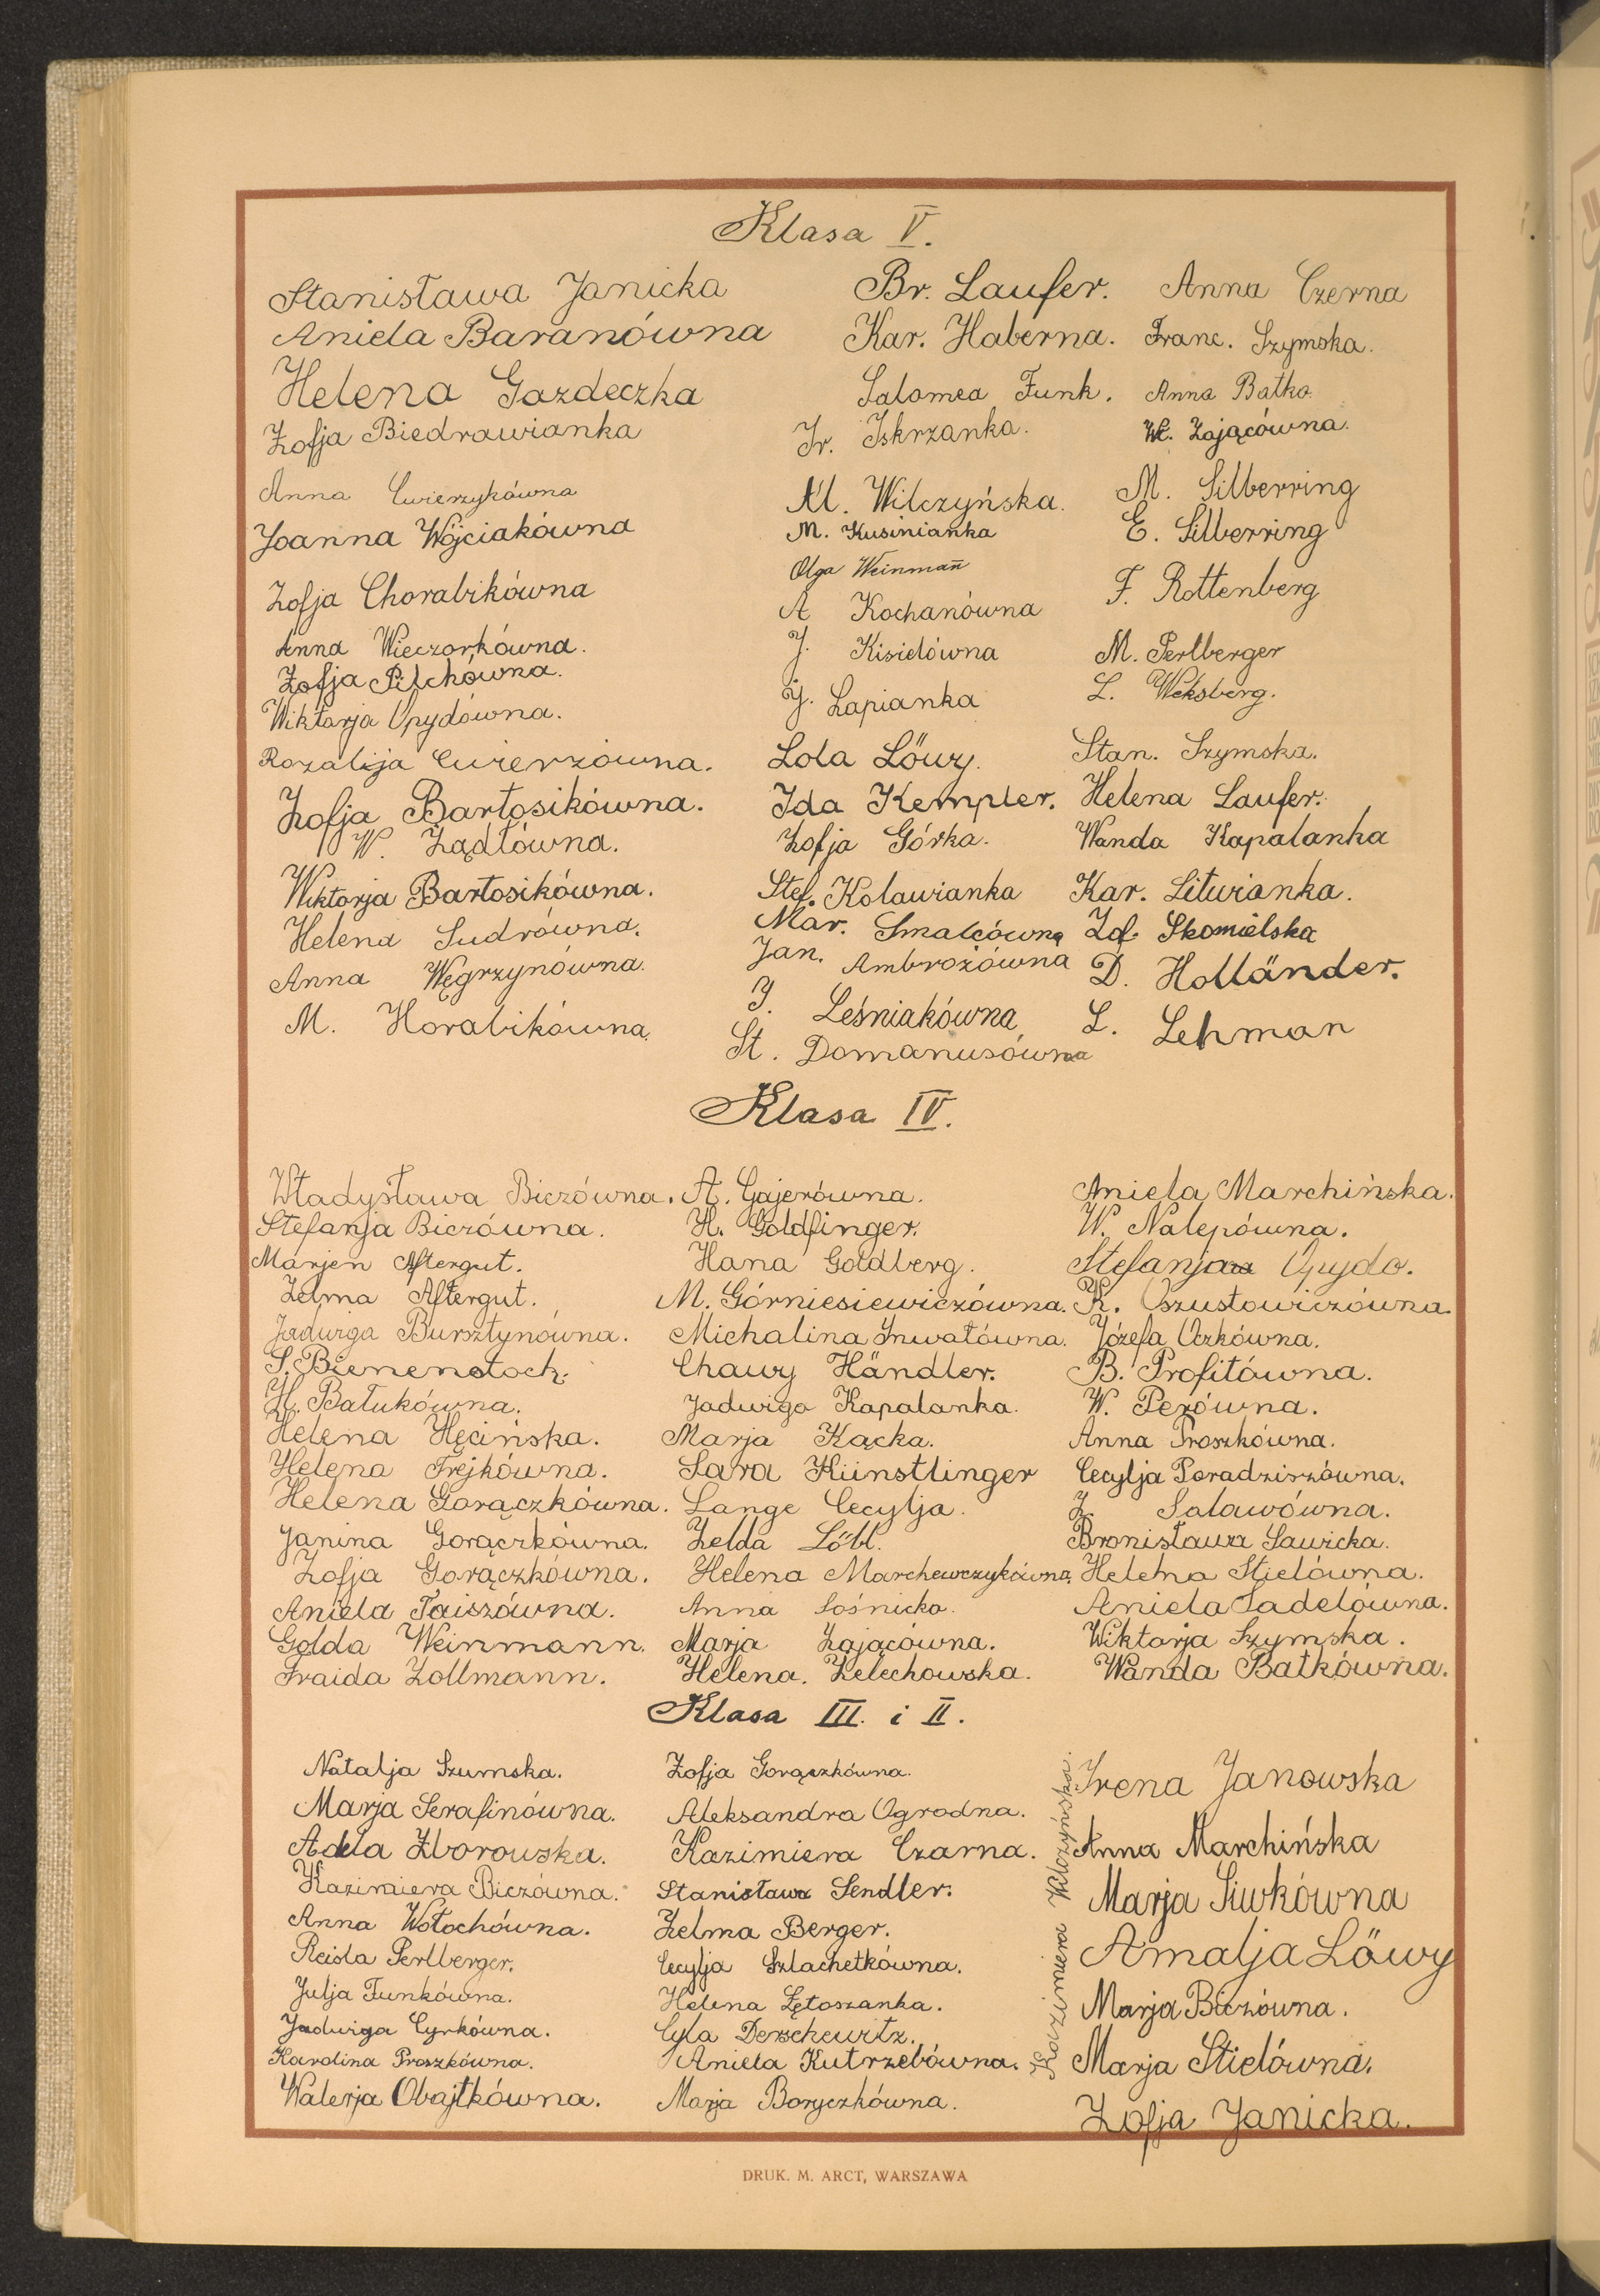 Klasa V.
Stanisława Janicka
Aniela Baranówna
Helena Gazdeczka
Zofja Biedrawianka
Anna Cwierzykówna
Joanna Wójciakówna
Zofja Chorabikówna
Anna Wieczorkówna.
Zofja Pilchówna.
Wiktorja Opydówna.
Rozalja Cwierzówna.
Zofja Bartosikówna.
W. Żądłówna.
Wiktorja Bartosikówna.
Helena Sudrówna.
Anna Węgrzynówna.
M. Horabikówna.
Br. Laufer.
Kar. Haberna.
Salomea Funk.
Ir. Iskrzanka.
M. Wilczyńska.
M. Kusinianka
Olga Weinmañ
A Kochanówna
J. Kisielówna
J. Łapianka
Lola Löwy.
Ida Kempler.
Zofja Górka.
Stef. Kolawianka
Mar. Smalcówna
Jan. Ambrożówna
J. Leśniakówna
St. Domanusówna
Anna Czerna
Franc. Szymska.
Anna Batko.
Wł. Zającówna.
M. Silberring
E. Silberring
F. Rottenberg
M. Perlberger
L. Weksberg.
Stan. Szymska.
Helena Laufer.
Wanda Kapalanka
Kar. Litwianka.
Zof. Skomielska
D. Holländer.
L. Lehman
Klasa IV.
Władysława Biczówna.
Stefanja Biczówna.
Marjem Aftergut.
Zelma Aftergut.
Jadwiga Bursztynówna.
S. Bienenstock.
H. Batukówna.
Helena Hęcińska.
Helena Frejkówna.
Helena Gorączkówna.
Janina Gorączkówna.
Zofja Gorączkówna.
Aniela Taiszówna.
Golda Weinmann.
Fraida Zollmann.
A. Gajerówna.
H. Goldfinger.
Hana Goldberg.
M. Górniesiewiczówna.
Michalina Inwałówna.
Chawy Händler.
Jadwiga Kapalanka.
Marja Kącka.
Sara Künstlinger
Lange Cecylja.
Zelda Löbl.
Helena Marchewczykówna.
Anna Łośnicka.
Marja Zającówna.
Helena. Zelechowska.
Aniela Marchińska.
W. Nalepówna.
Stefanja Opydo.
K. Oszustowiczówna.
Józefa Oczkówna.
B. Profitówna.
W. Perówna.
Anna Proszkówna.
Cecylja Poradziszówna.
Z. Salawówna.
Bronisława Sawicka.
Helena Stielówna.
Aniela Sadelówna.
Wiktorja Szymska.
Wanda Batkówna.
Klasa III. i II.
Natalja Szumska.
Marja Serafinówna.
Adela Zborowska.
Kazimiera Biczówna.
Anna Wołochówna.
Reisla Perlberger.
Julja Funkówna.
Jadwiga Cyrkówna.
Karolina Proszkówna.
Walerja Obajtkówna.
Zofja Gorączkówna.
Aleksandra Ogrodna.
Kazimiera Czarna.
Stanisława Sendler.
Zelma Berger.
Cecylja Szlachetkówna.
Helena Łętoszanka.
Cyla Derschewitz.
Aniela Kutrzebówna.
Marja Boryczkówna.
Kazimiera Kłozyńska.
Irena Janowska
Anna Marchińska
Marja Siwkówna
Amalja Löwy
Marja Biczówna.
Marja Stielówna.
Zofja Janicka.
DRUK. M. ARCT, WARSZAWA